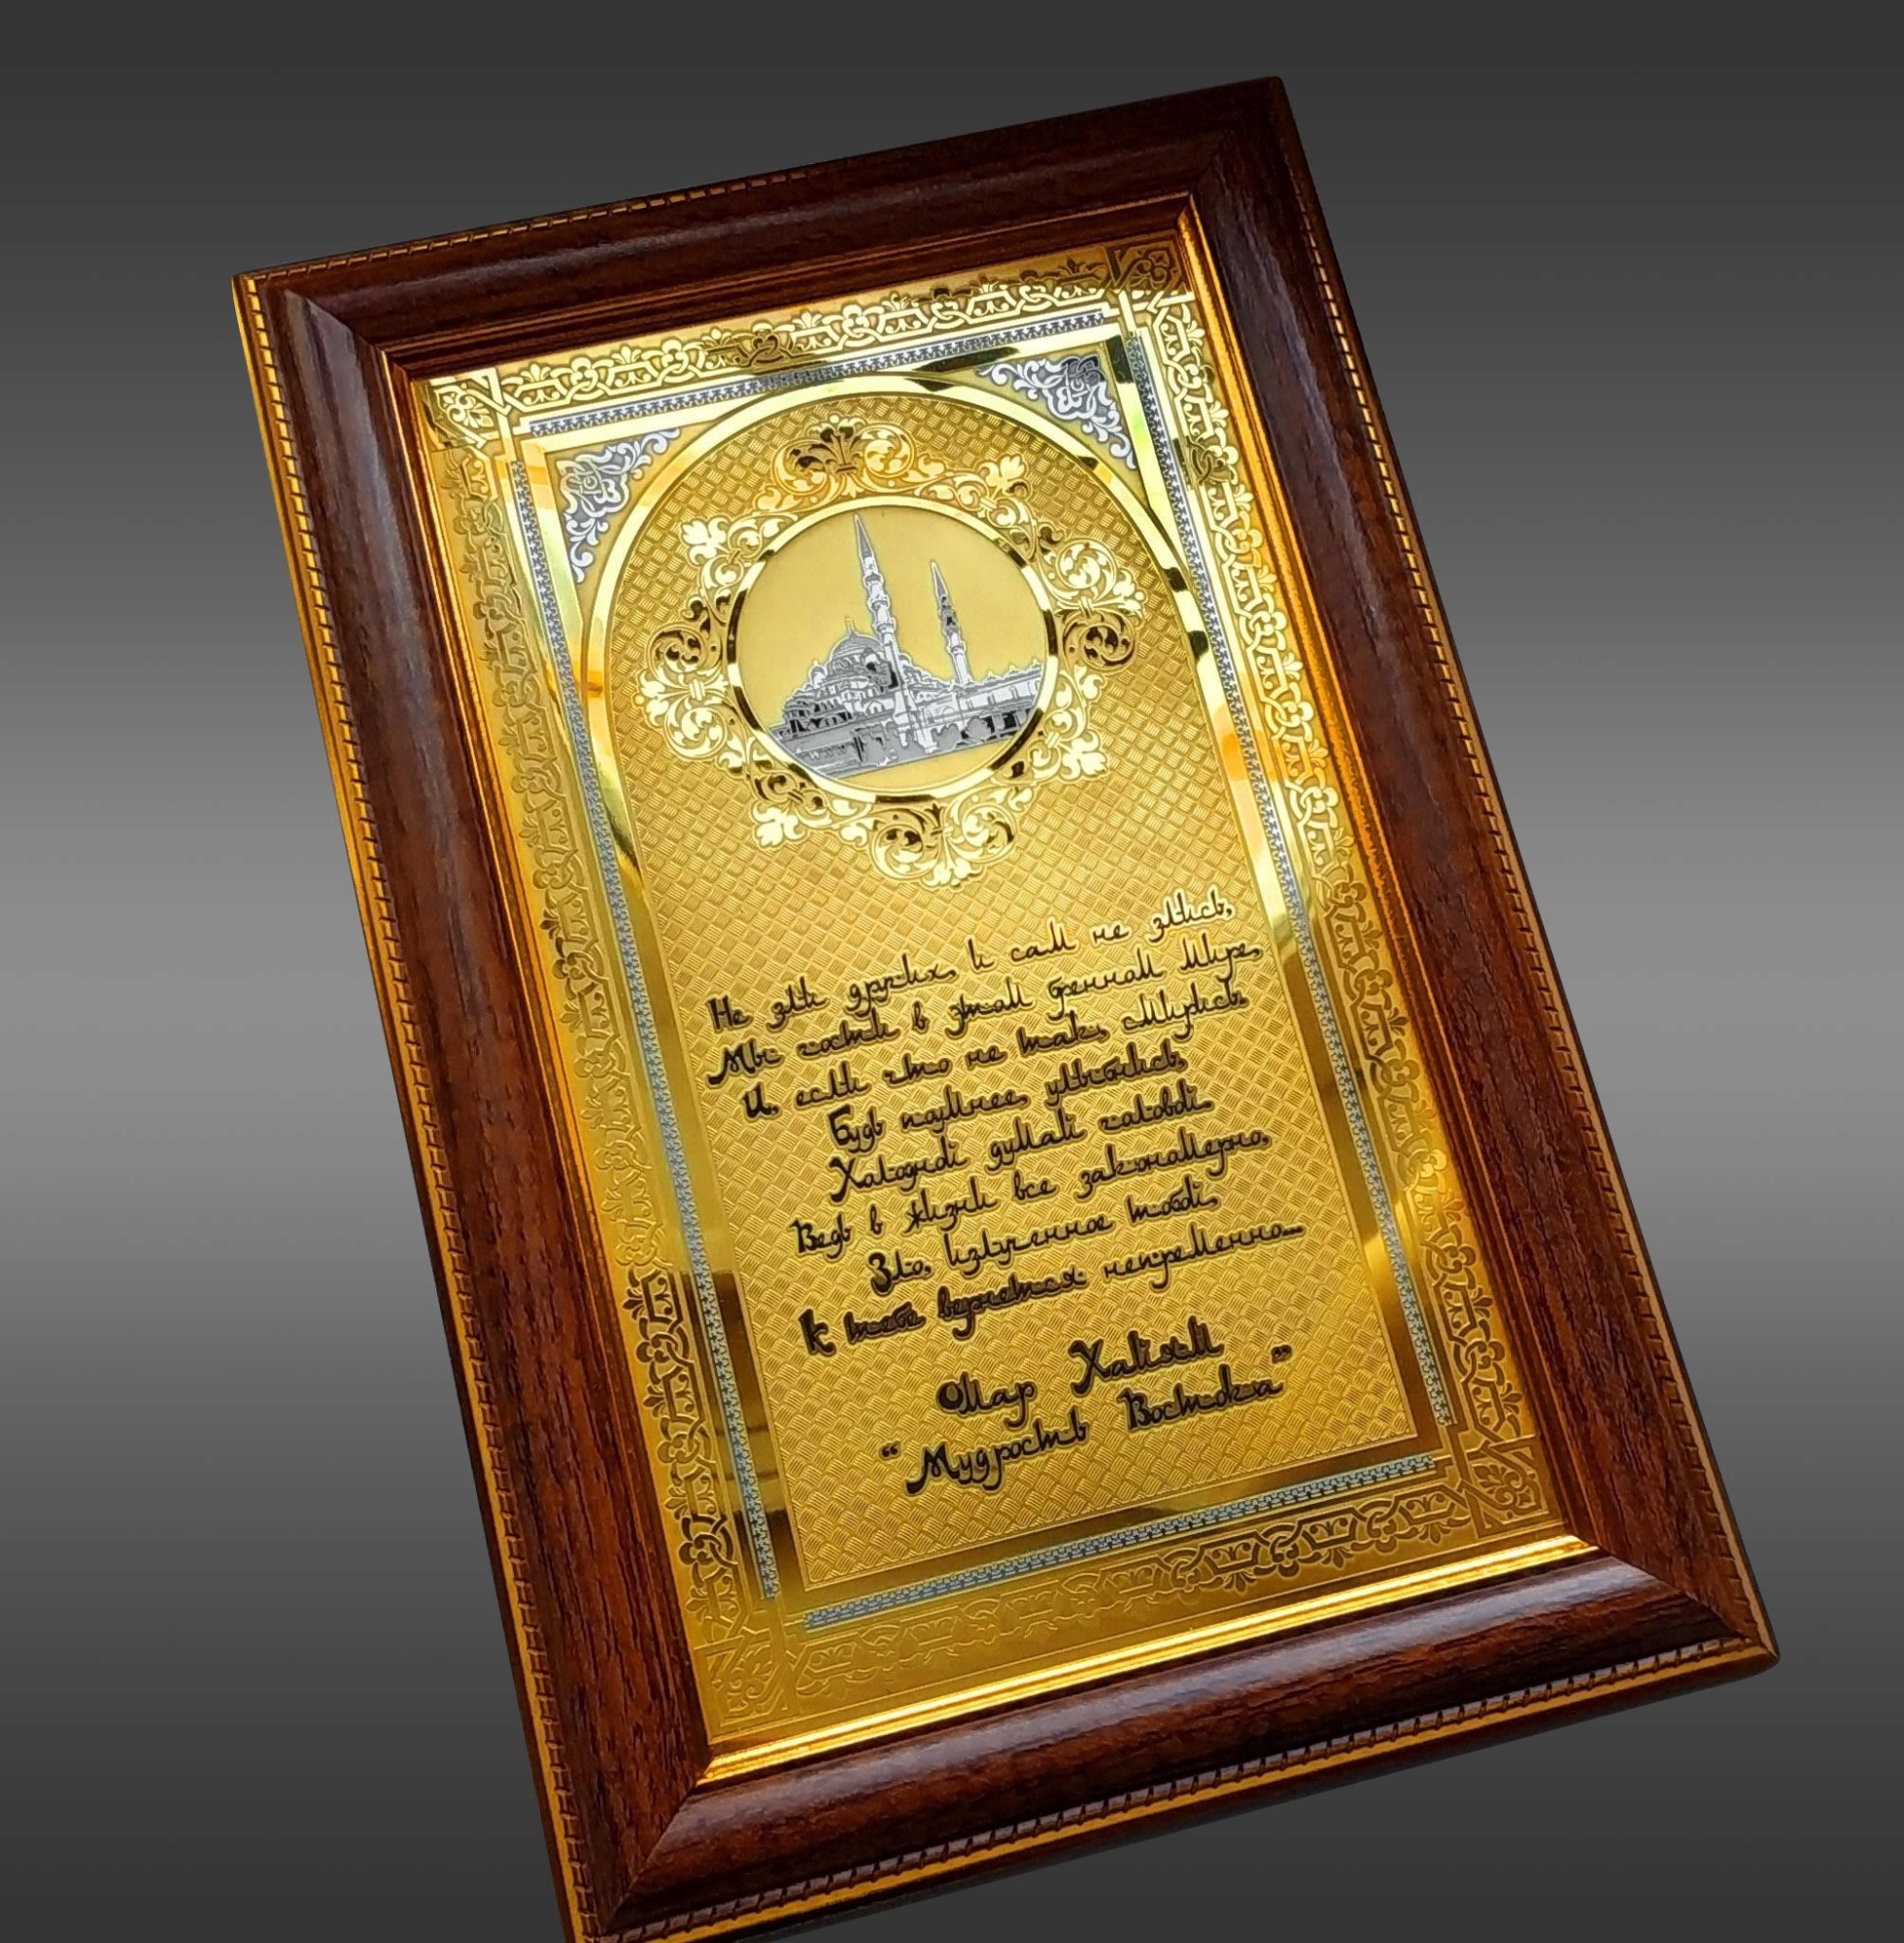 Не зли других, и сам не злись,
Мы гости в этом бренном мире,
И, если что не так, смирись
Будь поумнее, улыбнись,
Холодной думай головой.
Ведь в жизни все закономерно,
Зло, излученное тобой,
К тебе вернется непременно...
Омар Хайям
"Мудрость Востока"